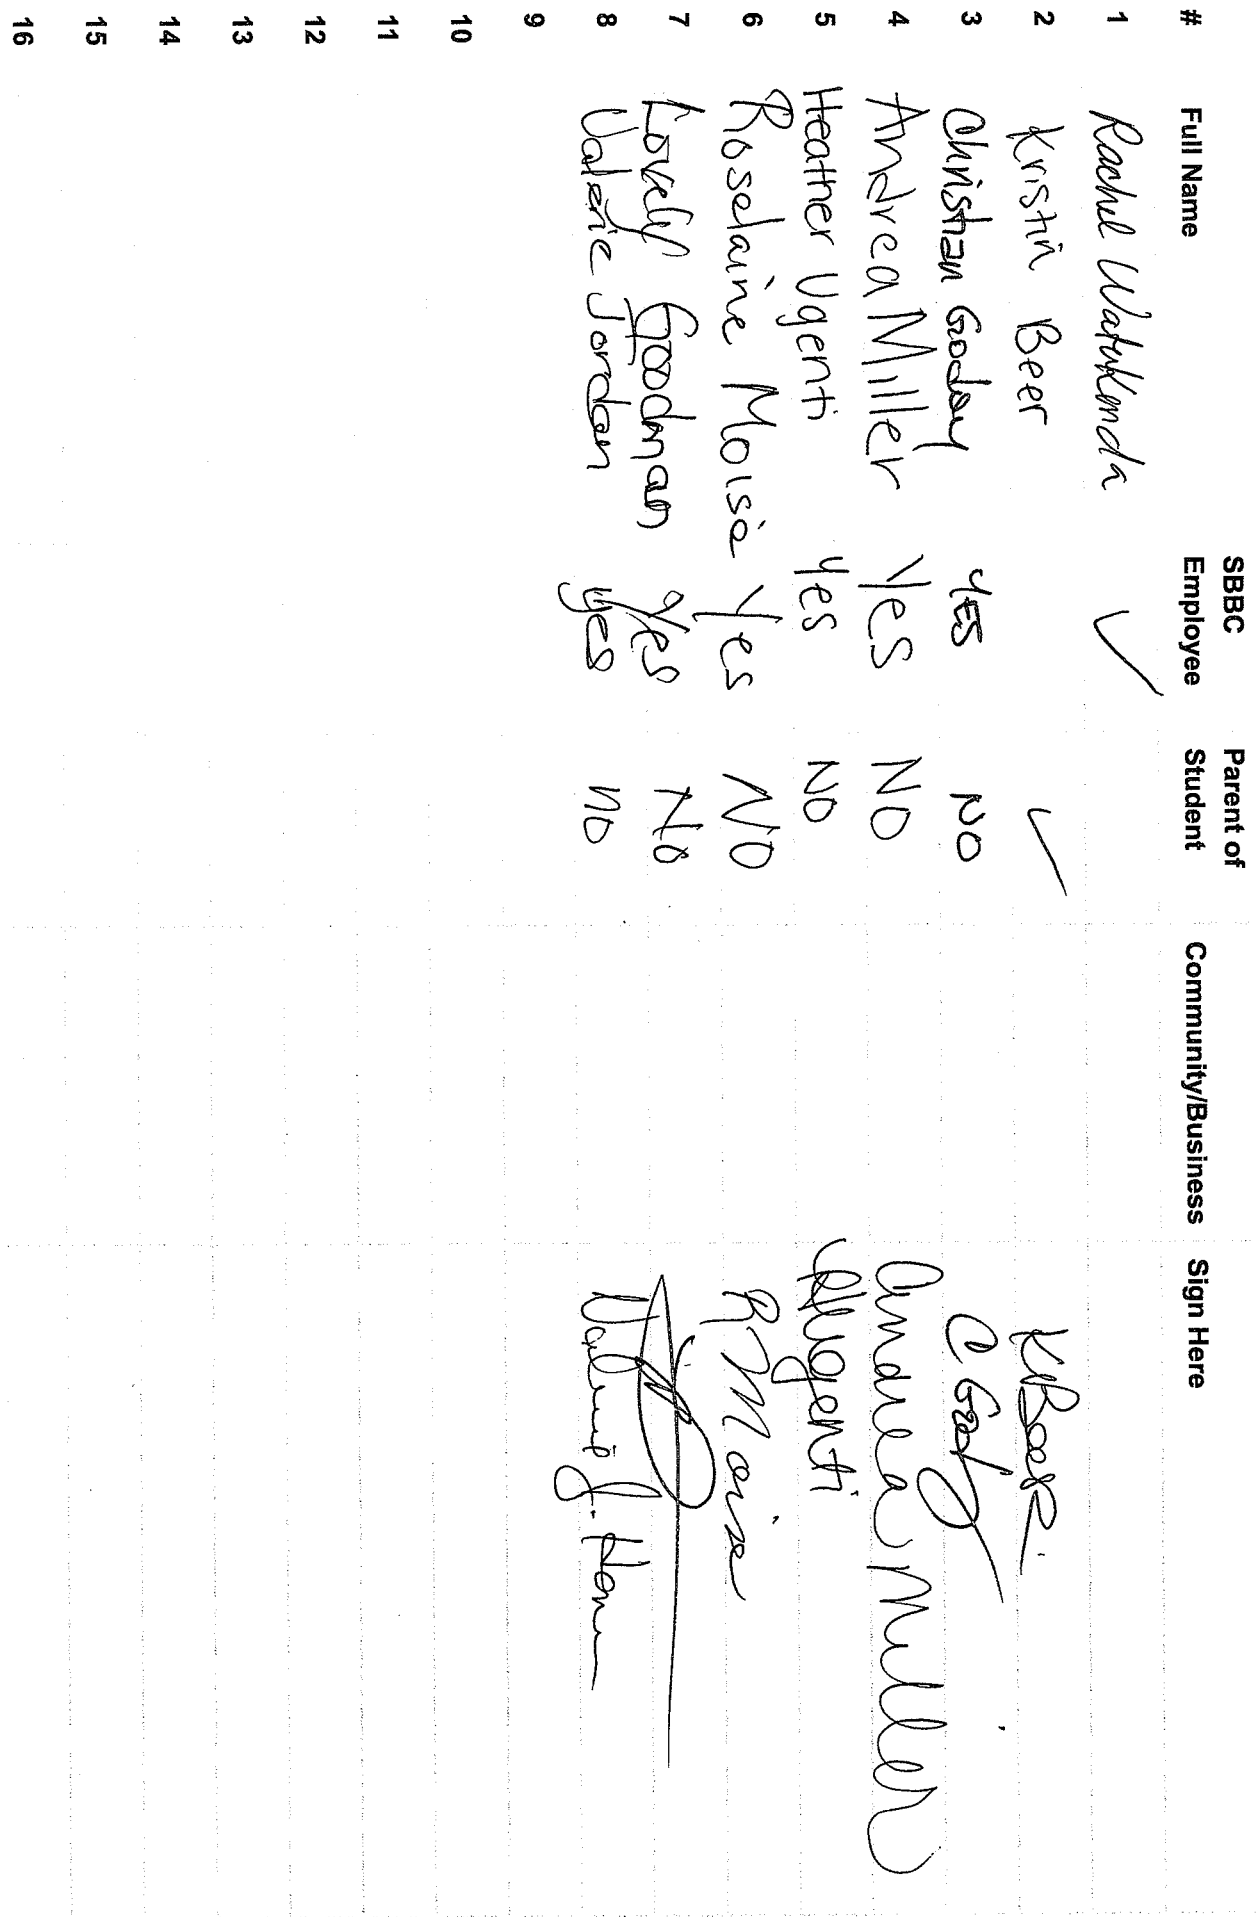 # Full Name SBBC Employee Parent of Student Community/Business Sign Here
1 Rachel ✓
2 Kristin Beer ✓ KBeer
3 Christian Godoy YES NO C Godoy
4 Andrea Miller Yes NO Andrea Miller
5 Heather Ugenti Yes NO HUgenti
6 Roselaine Moise Yes NO R Moise
7 Lovely Goodman Yes No
8 Valerie Jordan yes no
9
10
11
12
13
14
15
16